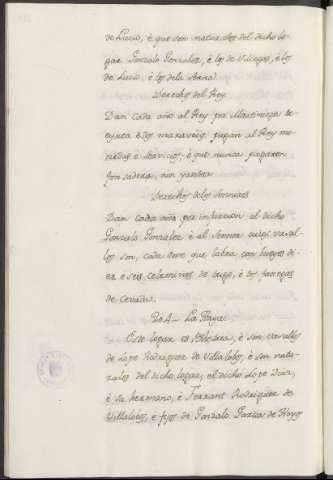 de Lucio, è que son naturales del dicho lo
gar Gonzalo Gonzalez, è los de Villegas, è los
de Lucio, è los dela Serna.
Derechos del Rey
Dan cada año al Rey por Martiniega se
tenta è dos maravedis, pagan al Rey mo
nedas è servicios, è que nunca pagaron
fonsadera, nin yantar.
Derechos delos Sennores
Dan cada año por infurcion al dicho
Gonzalo Gonzalez è al Sennor cuios vasa
llos son, cada ome que labra con bueyes
è seis celemines de trigo, è dos fanegas
de cevada.
La Haya
Este logar es Behetria, è son vasallos
de Lope Rodriguez de Villalobos, è son natu
rales del dicho logar, el dicho Lope Diaz,
è su hermano, è Ferrant Rodriguez de
Villalobos, è fijos de Gonzalo Garcia de Hoyos